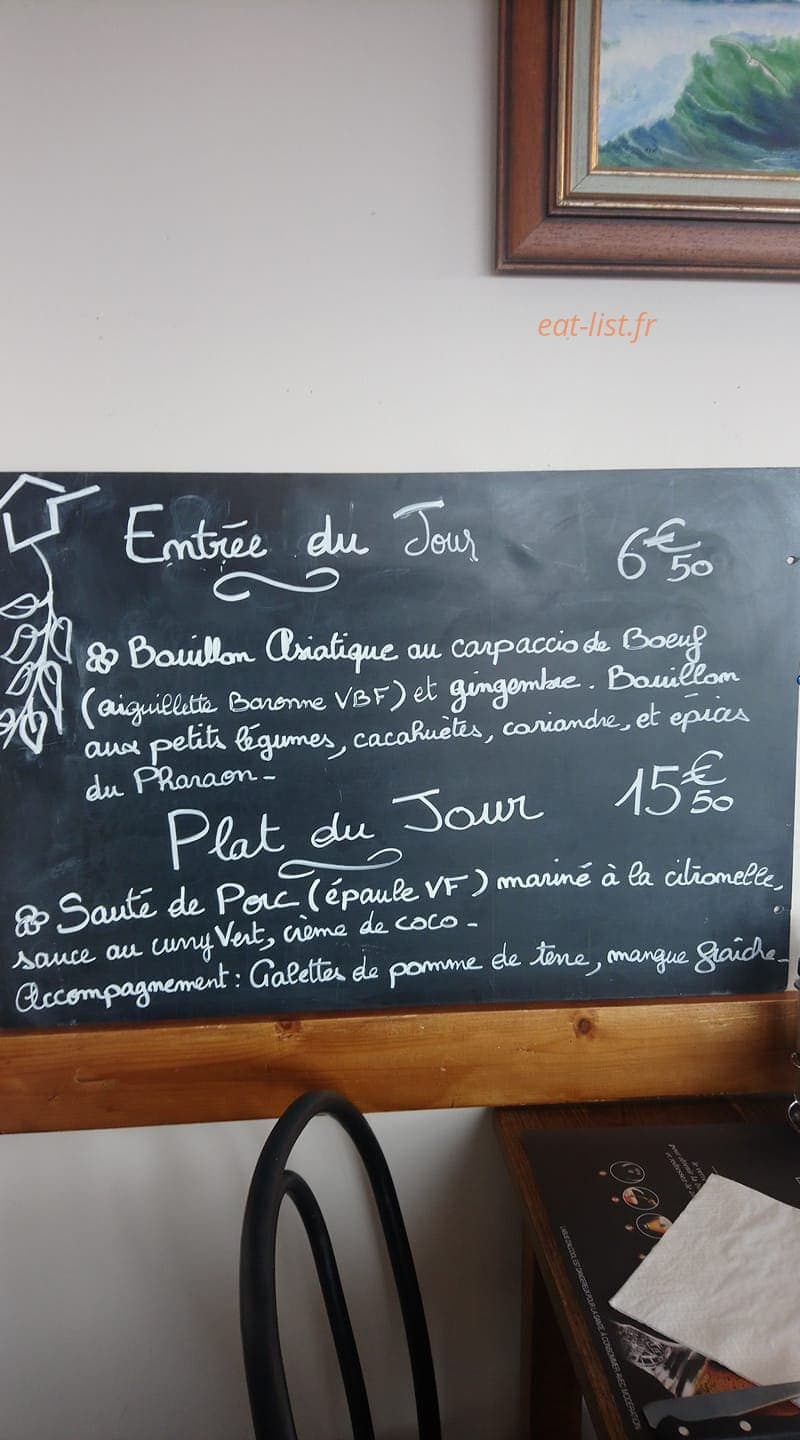 eat-list.fr
Entrée du Jour 6€50
Bouillon Asiatique au carpaccio de Boeuf
(aiguillette Baronne VBF) et gingembre. Bouillon
aux petits légumes, cacahuètes, coriandre, et épices
du Pharaon-
Plat du Jour 15€50
Sauté de Porc (épaule VF) mariné à la citronelle,
sauce au curry Vert, crème de coco-
Accompagnement: Galettes de pomme de terre, mangue fraîche-
L'ABUS D'ALCOOL EST DANGEREUX POUR LA SANTÉ. À CONSOMMER AVEC MODÉRATION.